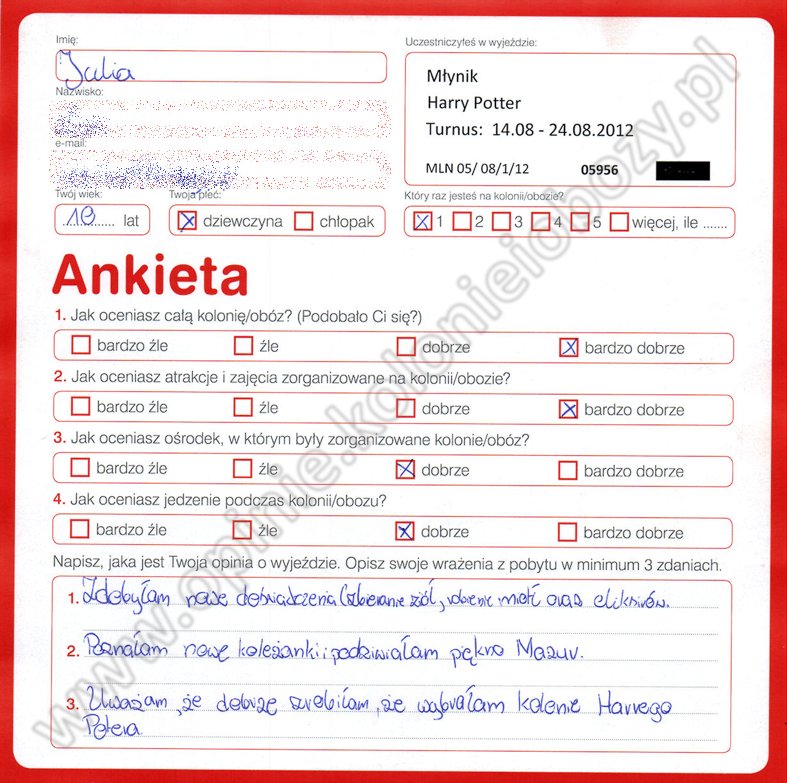 Imię:
Julia
Uczestniczyłeś w wyjeździe:
Młynik
Harry Potter
Turnus: 14.08 - 24.08.2012
MLN 05/ 08/1/12 05956
Nazwisko:
e-mail:
Twój wiek:
10 lat
Twoja płeć:
dziewczyna chłopak
Który raz jesteś na kolonii/obozie?
1 2 3 4 5 więcej, ile .......
Ankieta
1. Jak oceniasz całą kolonię/obóz? (Podobało Ci się?)
bardzo źle źle dobrze bardzo dobrze
2. Jak oceniasz atrakcje i zajęcia zorganizowane na kolonii/obozie?
bardzo źle źle dobrze bardzo dobrze
3. Jak oceniasz ośrodek, w którym były zorganizowane kolonie/obóz?
bardzo źle źle dobrze bardzo dobrze
4. Jak oceniasz jedzenie podczas kolonii/obozu?
bardzo źle źle dobrze bardzo dobrze
Napisz, jaka jest Twoja opinia o wyjeździe. Opisz swoje wrażenia z pobytu w minimum 3 zdaniach.
1. Zdobyłam nowe doświadczenia (zbieranie ziół, robienie mioteł oraz eliksirów.
2. Poznałam nowe koleżanki i podziwiałam piękno Mazur.
3. Uważam, że dobrze zrobiłam, że wybrałam kolonie Harrego
Potera.
www.opinie.kolonieiobozy.pl